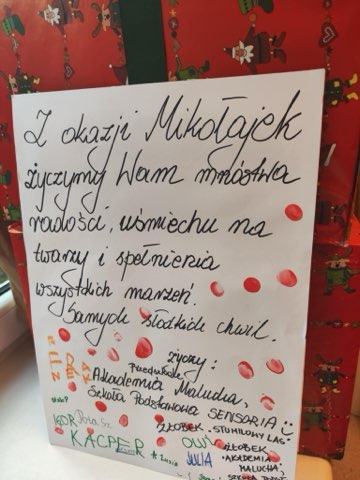 Z okazji Mikołajek
życzymy Wam mnóstwa
radości, uśmiechu na
twarzy i spełnienia
wszystkich marzeń.
Samych słodkich chwil.
życzy:
Przedszkole
Akademia Malucha,
Szkoła Podstawowa SENSORIA
ŻŁOBEK "STUMILOWY LAS"
IGOR
OLIWIA
ŻŁOBEK
KACPER
JULIA
"AKADEMIA
MALUCHA,
Zuzia